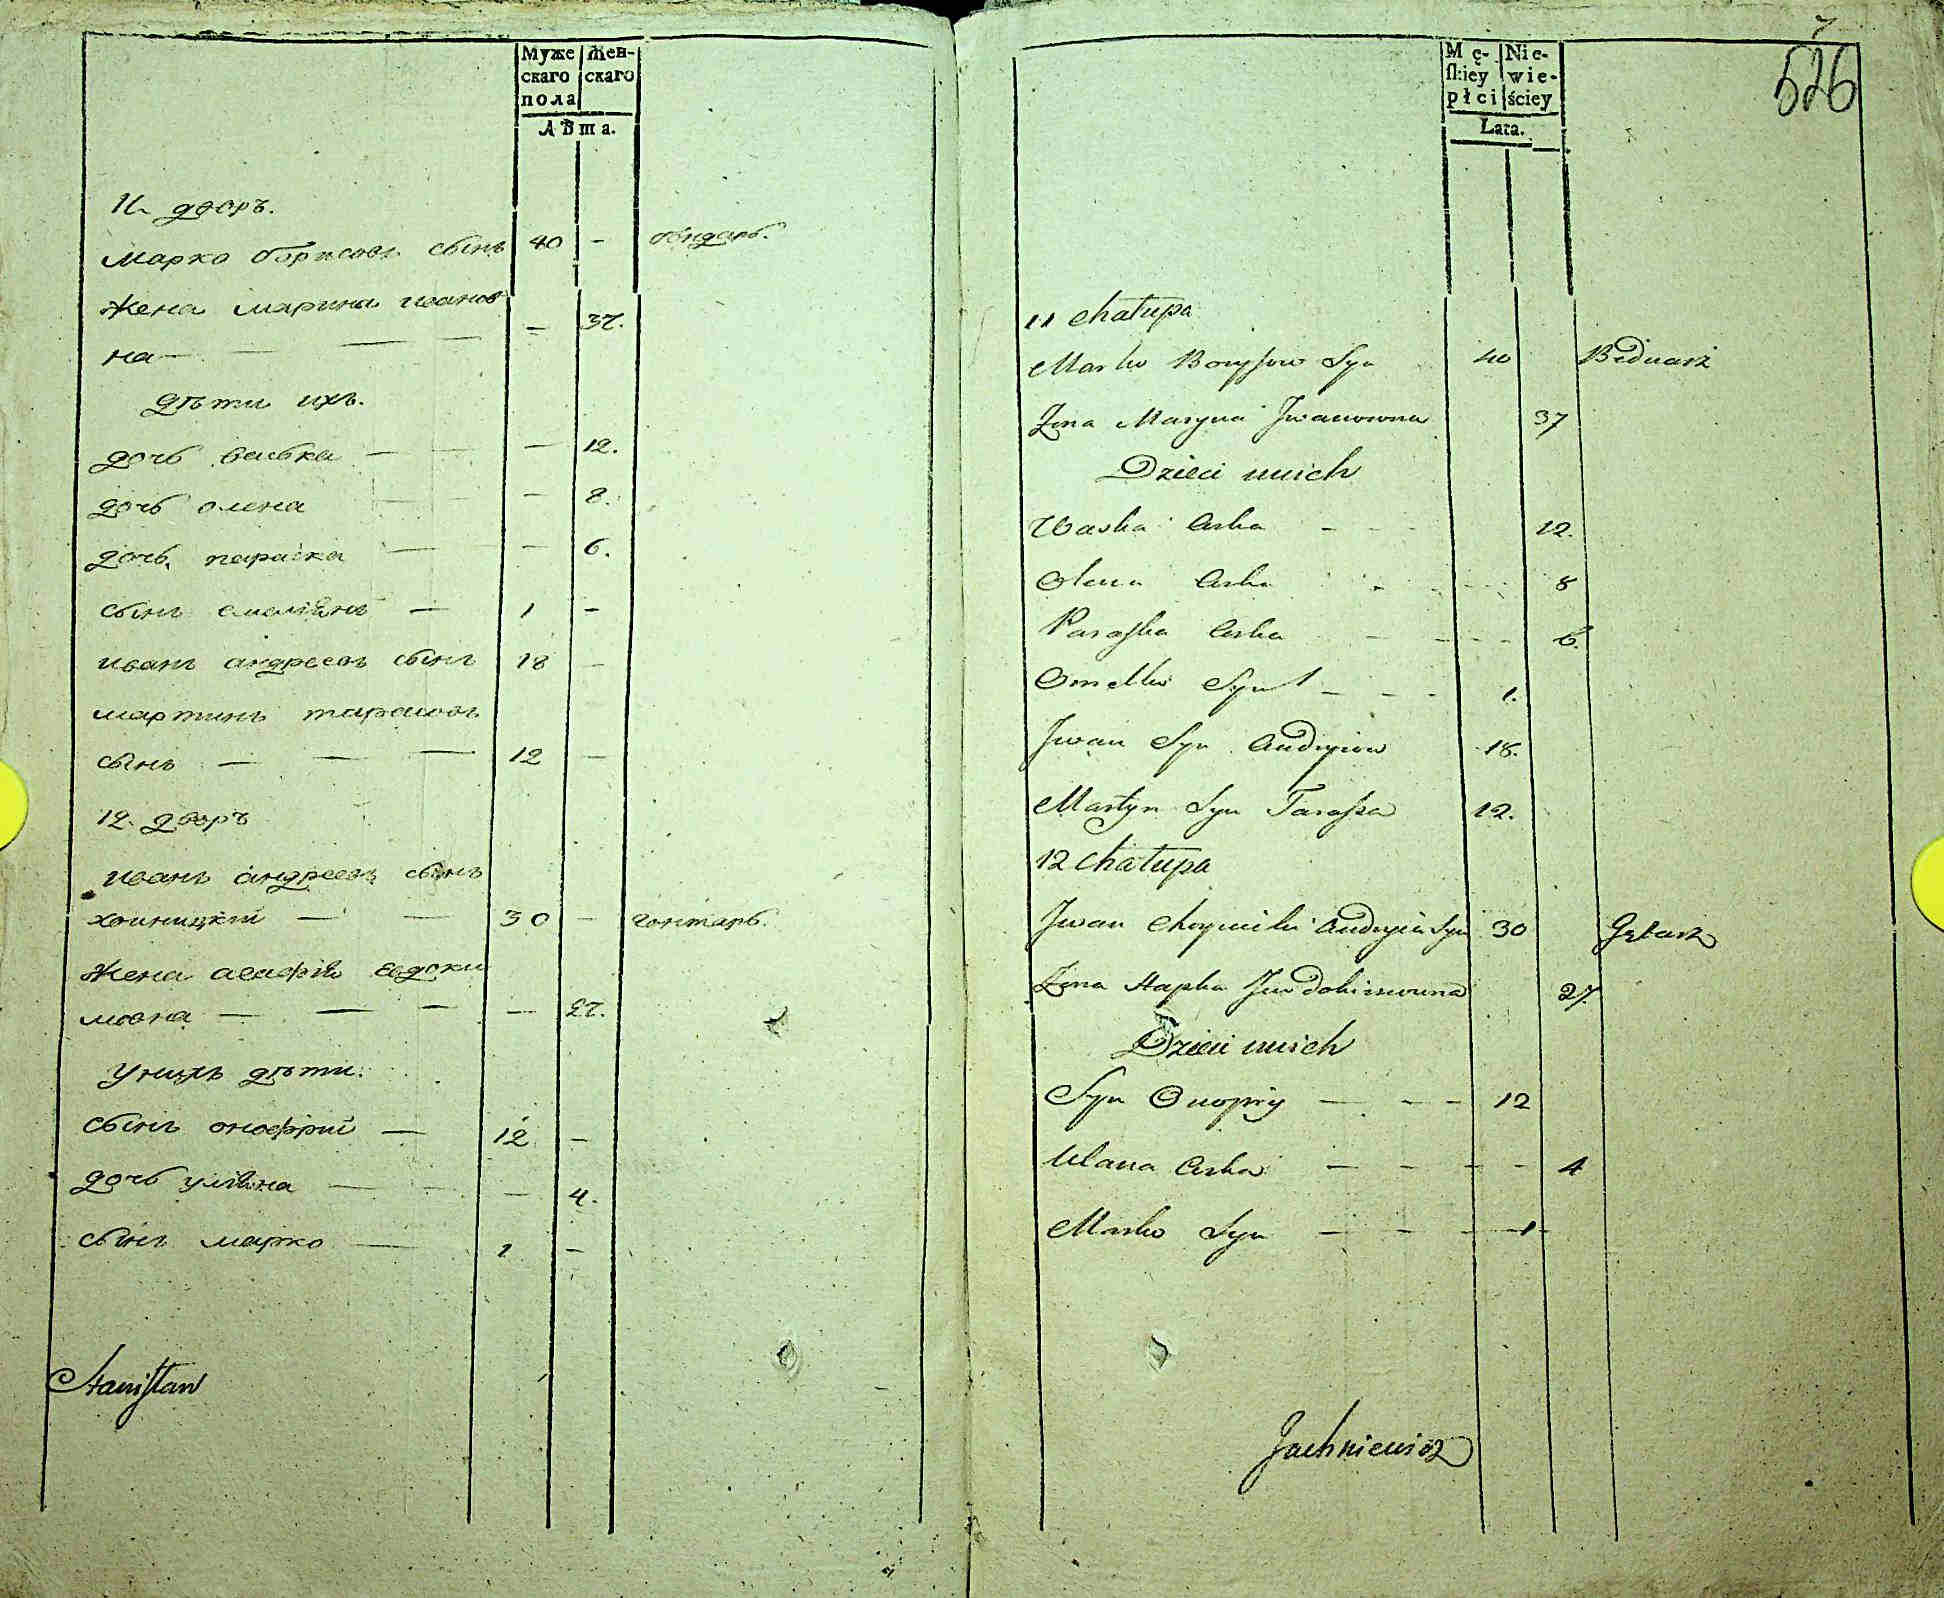 Муже
скаго
пола
Жен-
скаго
Лѣта.
11 дворъ.
марко борисовъ сынъ 40 - бондарь.
жена марина иванов
на — — — — 37.
дѣти ихъ.
дочь васька — — — 12.
дочь олена — — — 8.
дочь параска — — 6.
сынъ емелiянъ — 1 -
иванъ андреевъ сынъ 18 —
мартинъ тарасовъ
сынъ — — — 12 —
12. дворъ
иванъ андреевъ сынъ
хоиницкiи — — 30 — гонтарь.
жена агафiя евдоки
мовна — — — — 27.
у нихъ дѣти.
сынъ онофрiи — 12 —
дочь улiяна — — — 4.
сынъ марко — 1 —
Stanisław
7
526
Mę-
skiey
płci
Nie-
wie-
ściey
Lata.
11 chałupa
Marko Borysow Syn 40 Bednarż
Żona Maryna Jwanowna 37
Dzieci unich
Waska Curka - - 12.
Olena Curka - - - 8
Paraska Curka - - - - 6.
Omelko Syn 1 - - - 1.
Jwan Syn Andryiow 18.
Martyn Syn Tarassa 12.
12 chałupa
Jwan Choynicki Andryia Syn 30 Gątarz
Żona Hapka Jwdokimowna 27.
Dzieci unich
Syn Onopry — - - 12
Ulana Curka — - - - 4
Marko Syn — - - - 1 -
Jachniewicz